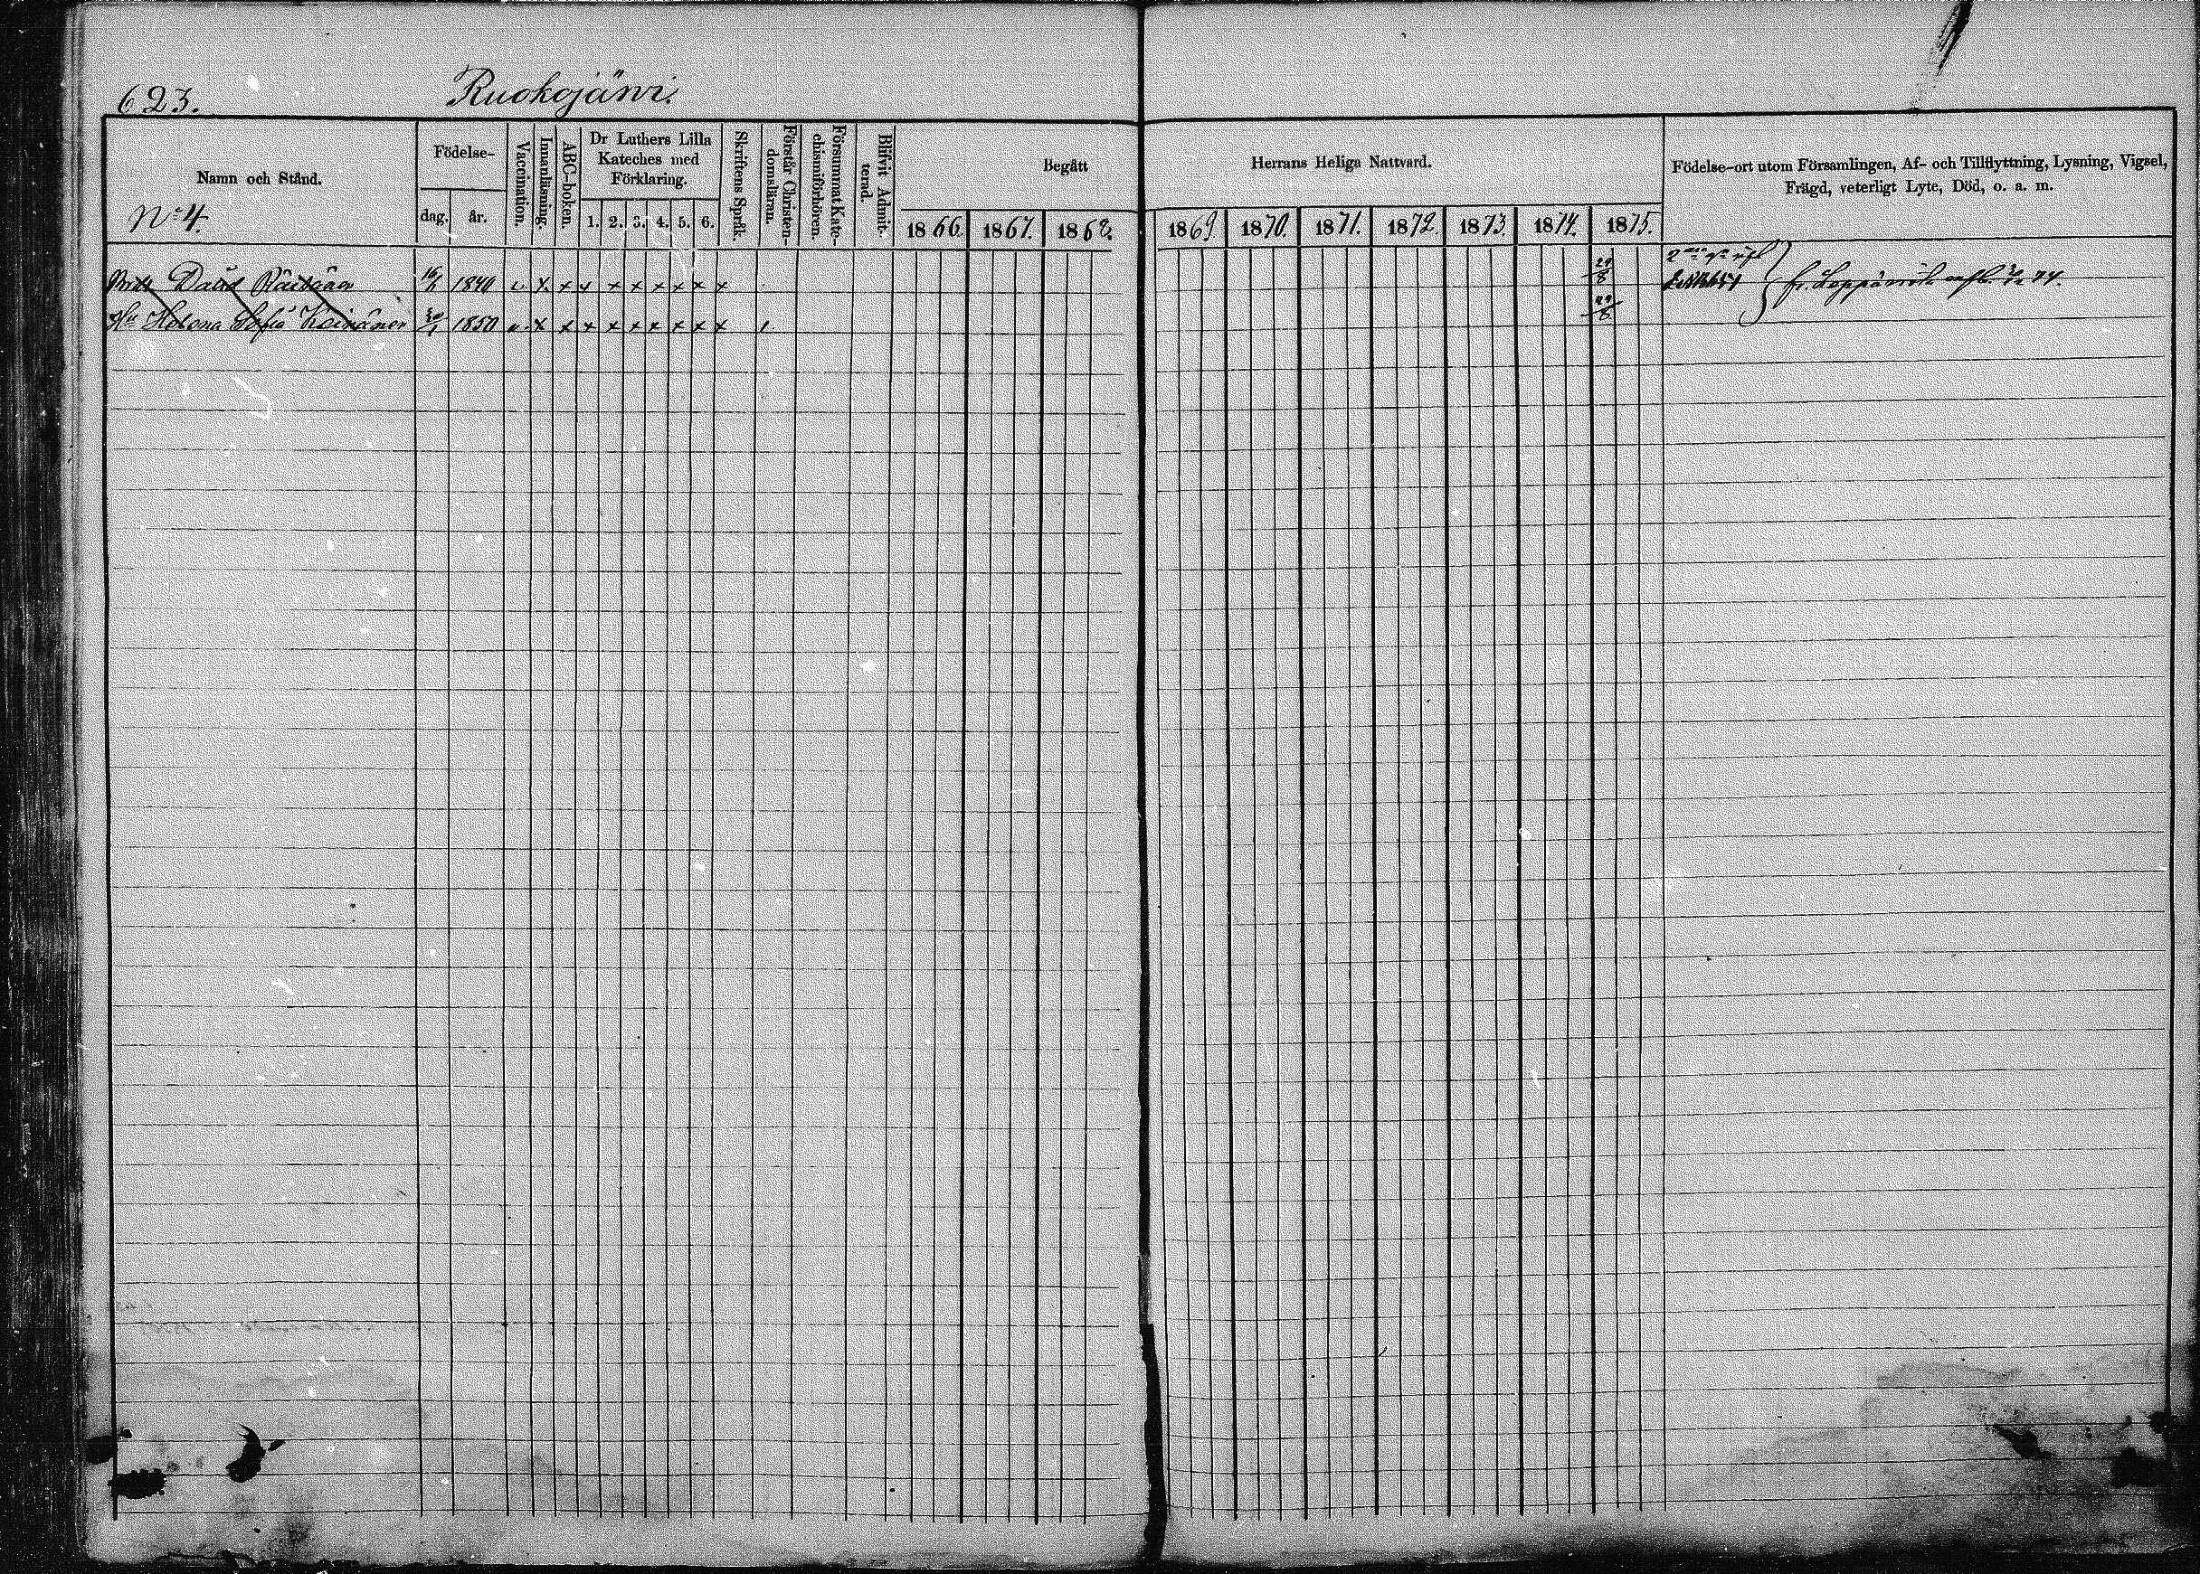 623. Ruokojärvi.
Namn och Stånd.
No 4.
Födelse-
dag. år.
Vaccination.
Innanläsning.
ABC-boken.
Dr Luthers Lilla
Kateches med
Förklaring.
1. 2. 3. 4. 5. 6.
Skriftens Språk.
Förstår Christen-
domsläran.
Försummat Kate-
chismiförhören.
Blifvit Admit-
terad.
Begått Herrans Heliga Nattvard.
1866. 1867. 1868. 1869. 1870. 1871. 1872. 1873. 1874. 1875.
Födelse-ort utom Församlingen, Af- och Tillflyttning, Lysning, Vigsel,
Frägd, veterligt Lyte, Död, o. a. m.
David Räisänen 1840 x x x x x x x x x 29/8
Hu Helena Sofia Koinänen 1850 x x x x x x x x x 29/8
fr. 74.